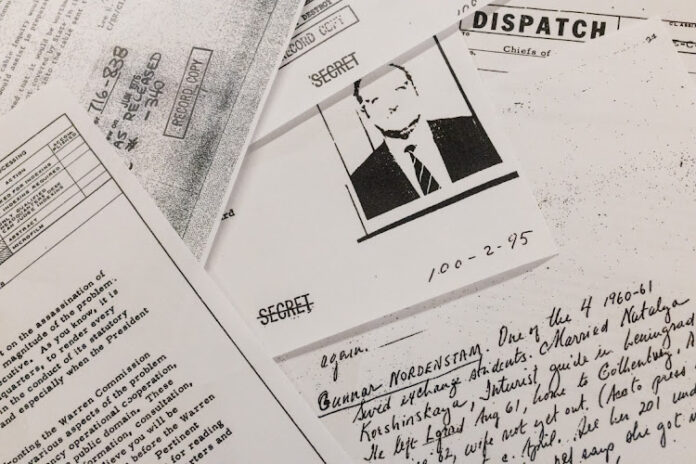 716-838
AS RELEASED
-340
RECORD COPY
DESTROY
RECORD COPY
SECRET
DISPATCH
Chiefs of
24
100-2-95
SECRET
ACTION
ABSTRACT
MICROFILM
t on the assassination of
magnitude of the problem.
As you know, it is
quarters, to render every
in the conduct of its statutory
and especially when the President
the Warren Commission
various aspects of the problem
operational cooperation,
public domain. These
formation, consultation,
elieve you will be
before the Warren
Pertinent
for reading
rters and
again.
Gunnar NORDENSTAM. One of the 4 1960-61
Swid exchange students. Married Natalya
Korshinskaya, Inturist guide in Leningrad
He left Lgrad Aug 61, home to Gothenburg,
62, wife not yet out. (Acc to press
c. April. See her 201
says she got